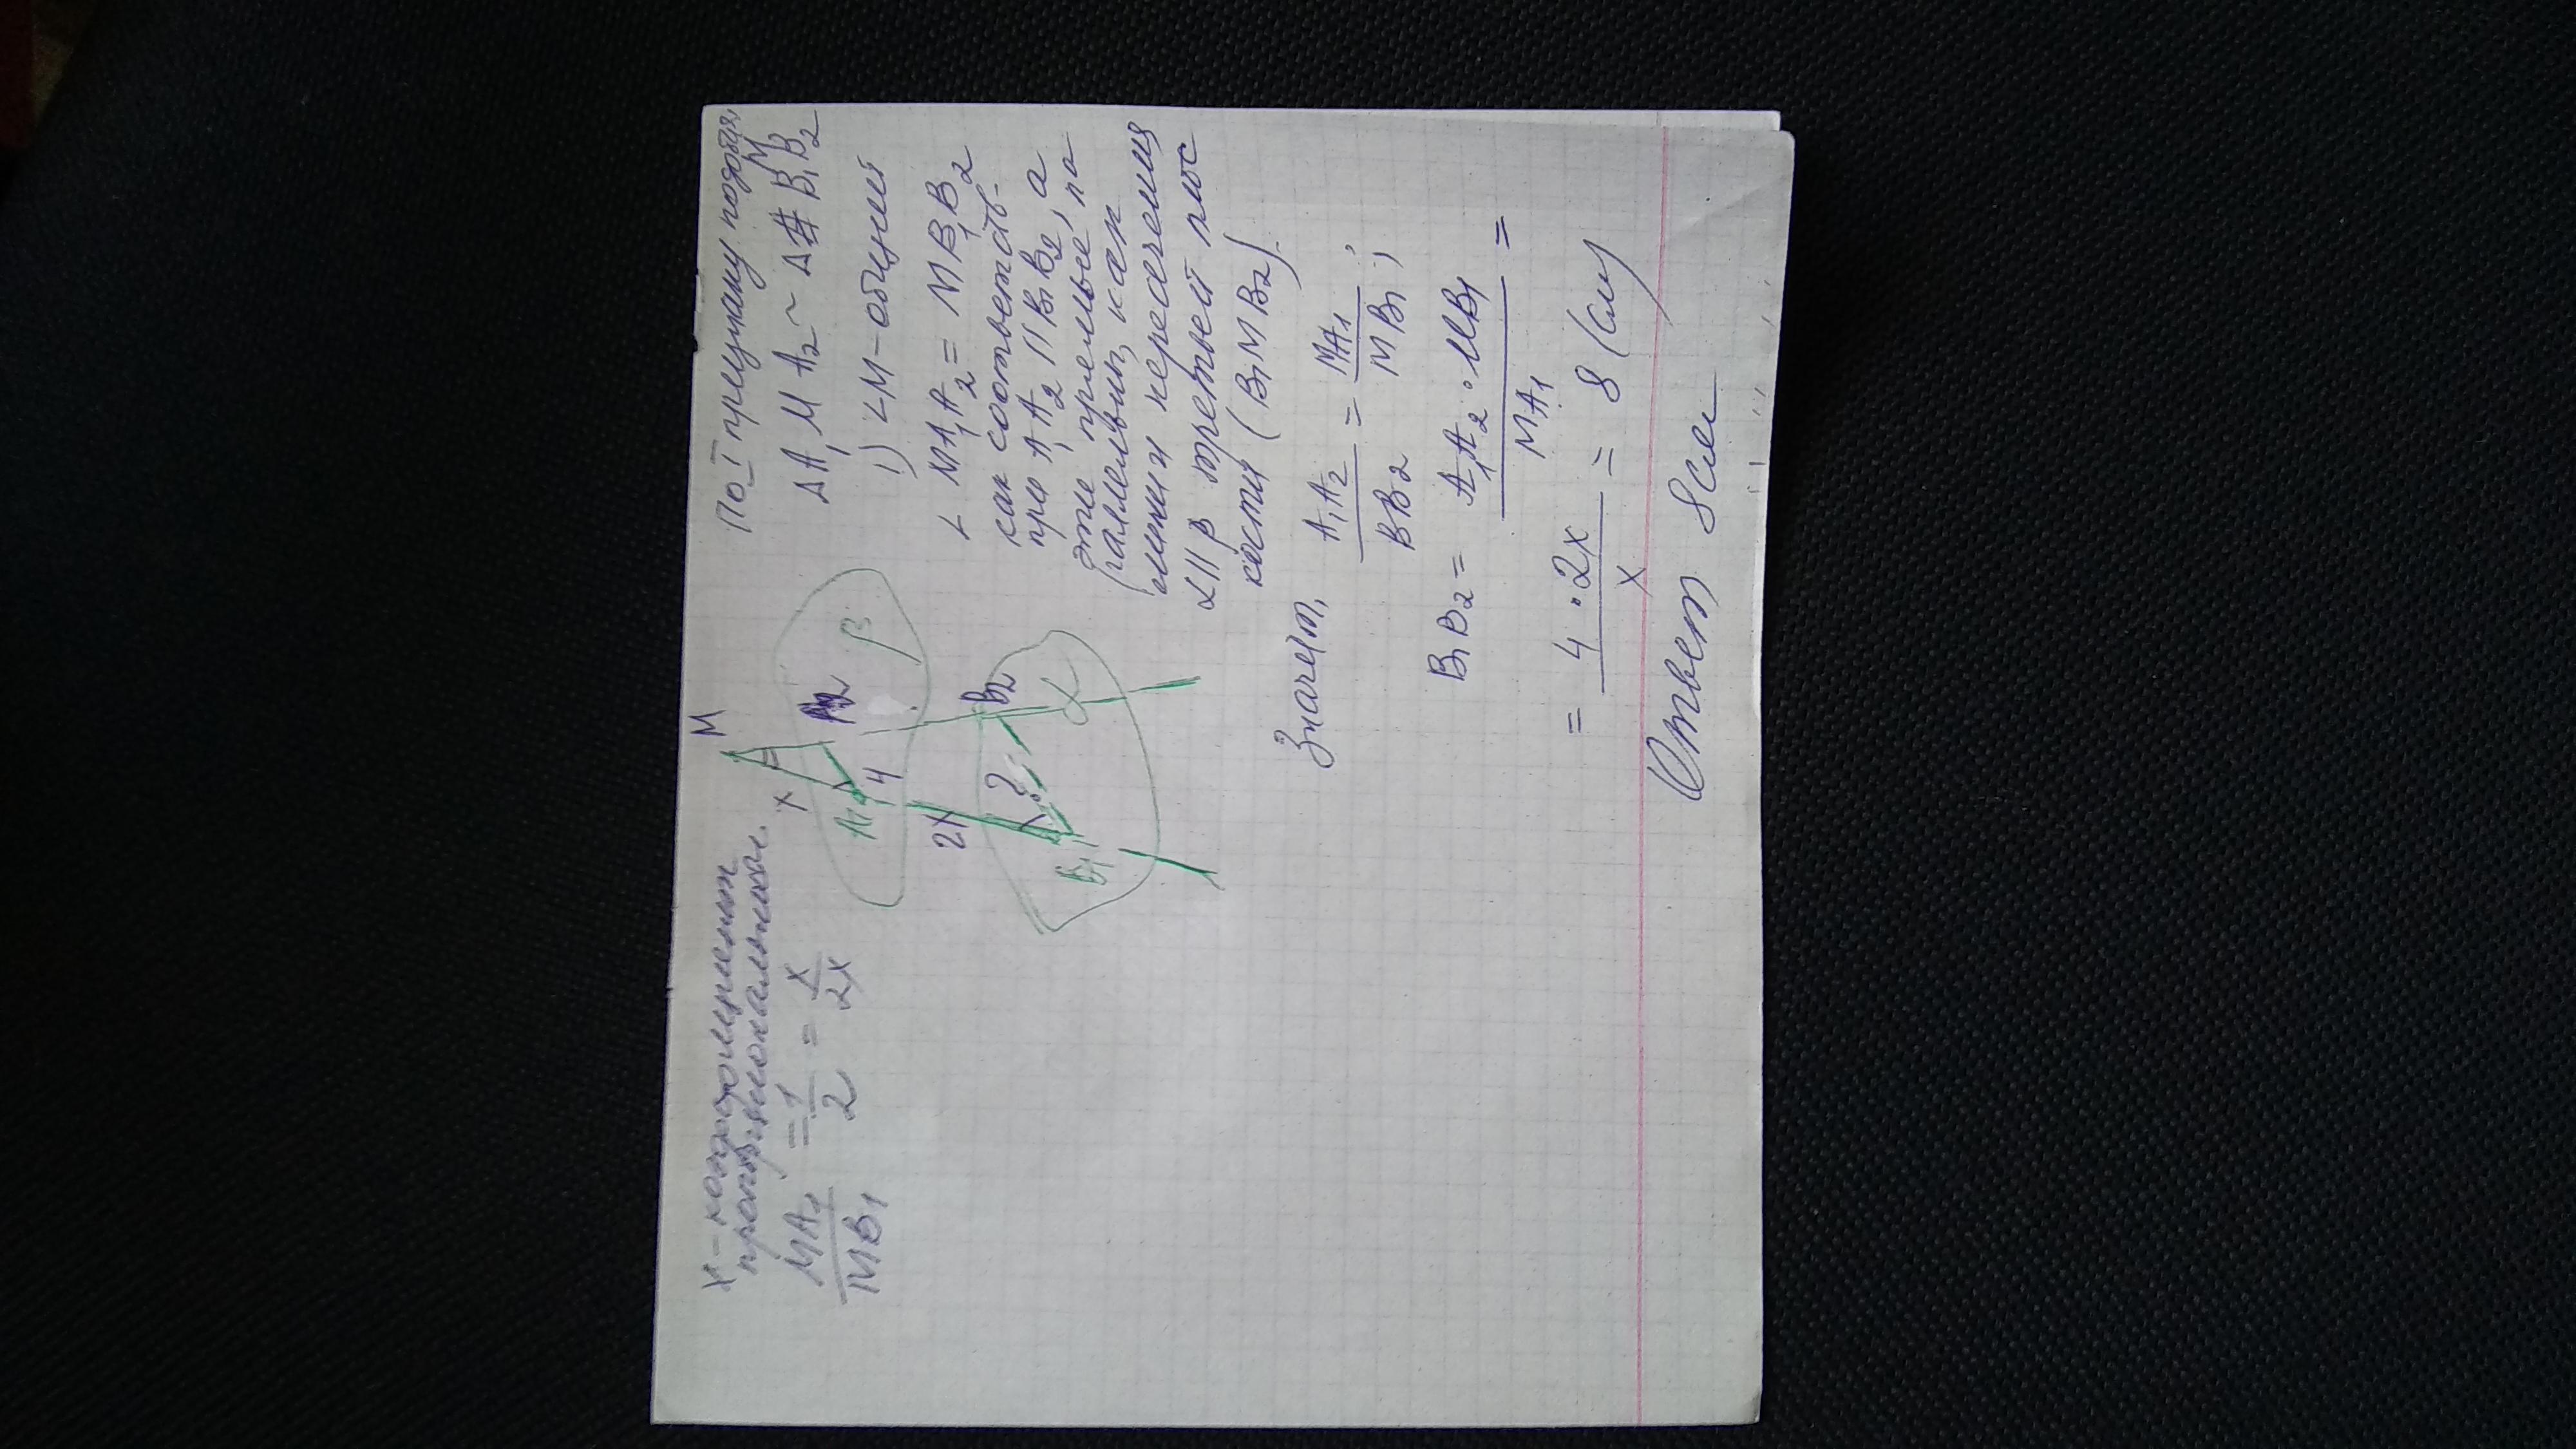 x - коэффициент
пропорциональности.
MA₁/MB₁ = 1/2 = x/2x
M
x
A₂
β
A₁
4
2x
B₂
?
α
B₁
По I признаку подобия
△A₁MA₂ ~ △B₁MB₂
1) ∠M - общий
∠ MA₁A₂ = MB₁B₂
как соответств-
при A₁A₂ || B₁B₂, а
эти прямые, па
раллельны, как
линии пересечения
α || β третьей плос
кости (B₁MB₂).
Значит, A₁A₂/BB₂ = MA₁/MB₁;
B₁B₂ = A₁A₂·MB₁/MA₁ =
= 4·2x/x = 8 (см)
Ответ 8см